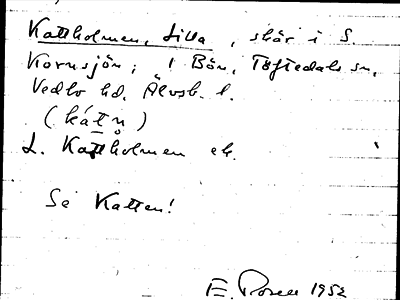 Kattholmen, Lilla, skär i S.
Kornsjön; i Bön, Töftedals sn,
Vedbo hd. Älvsb. l.
(kátn̥)
L. Kattholmen ek.
Se Katten!
E. Rosell 1952